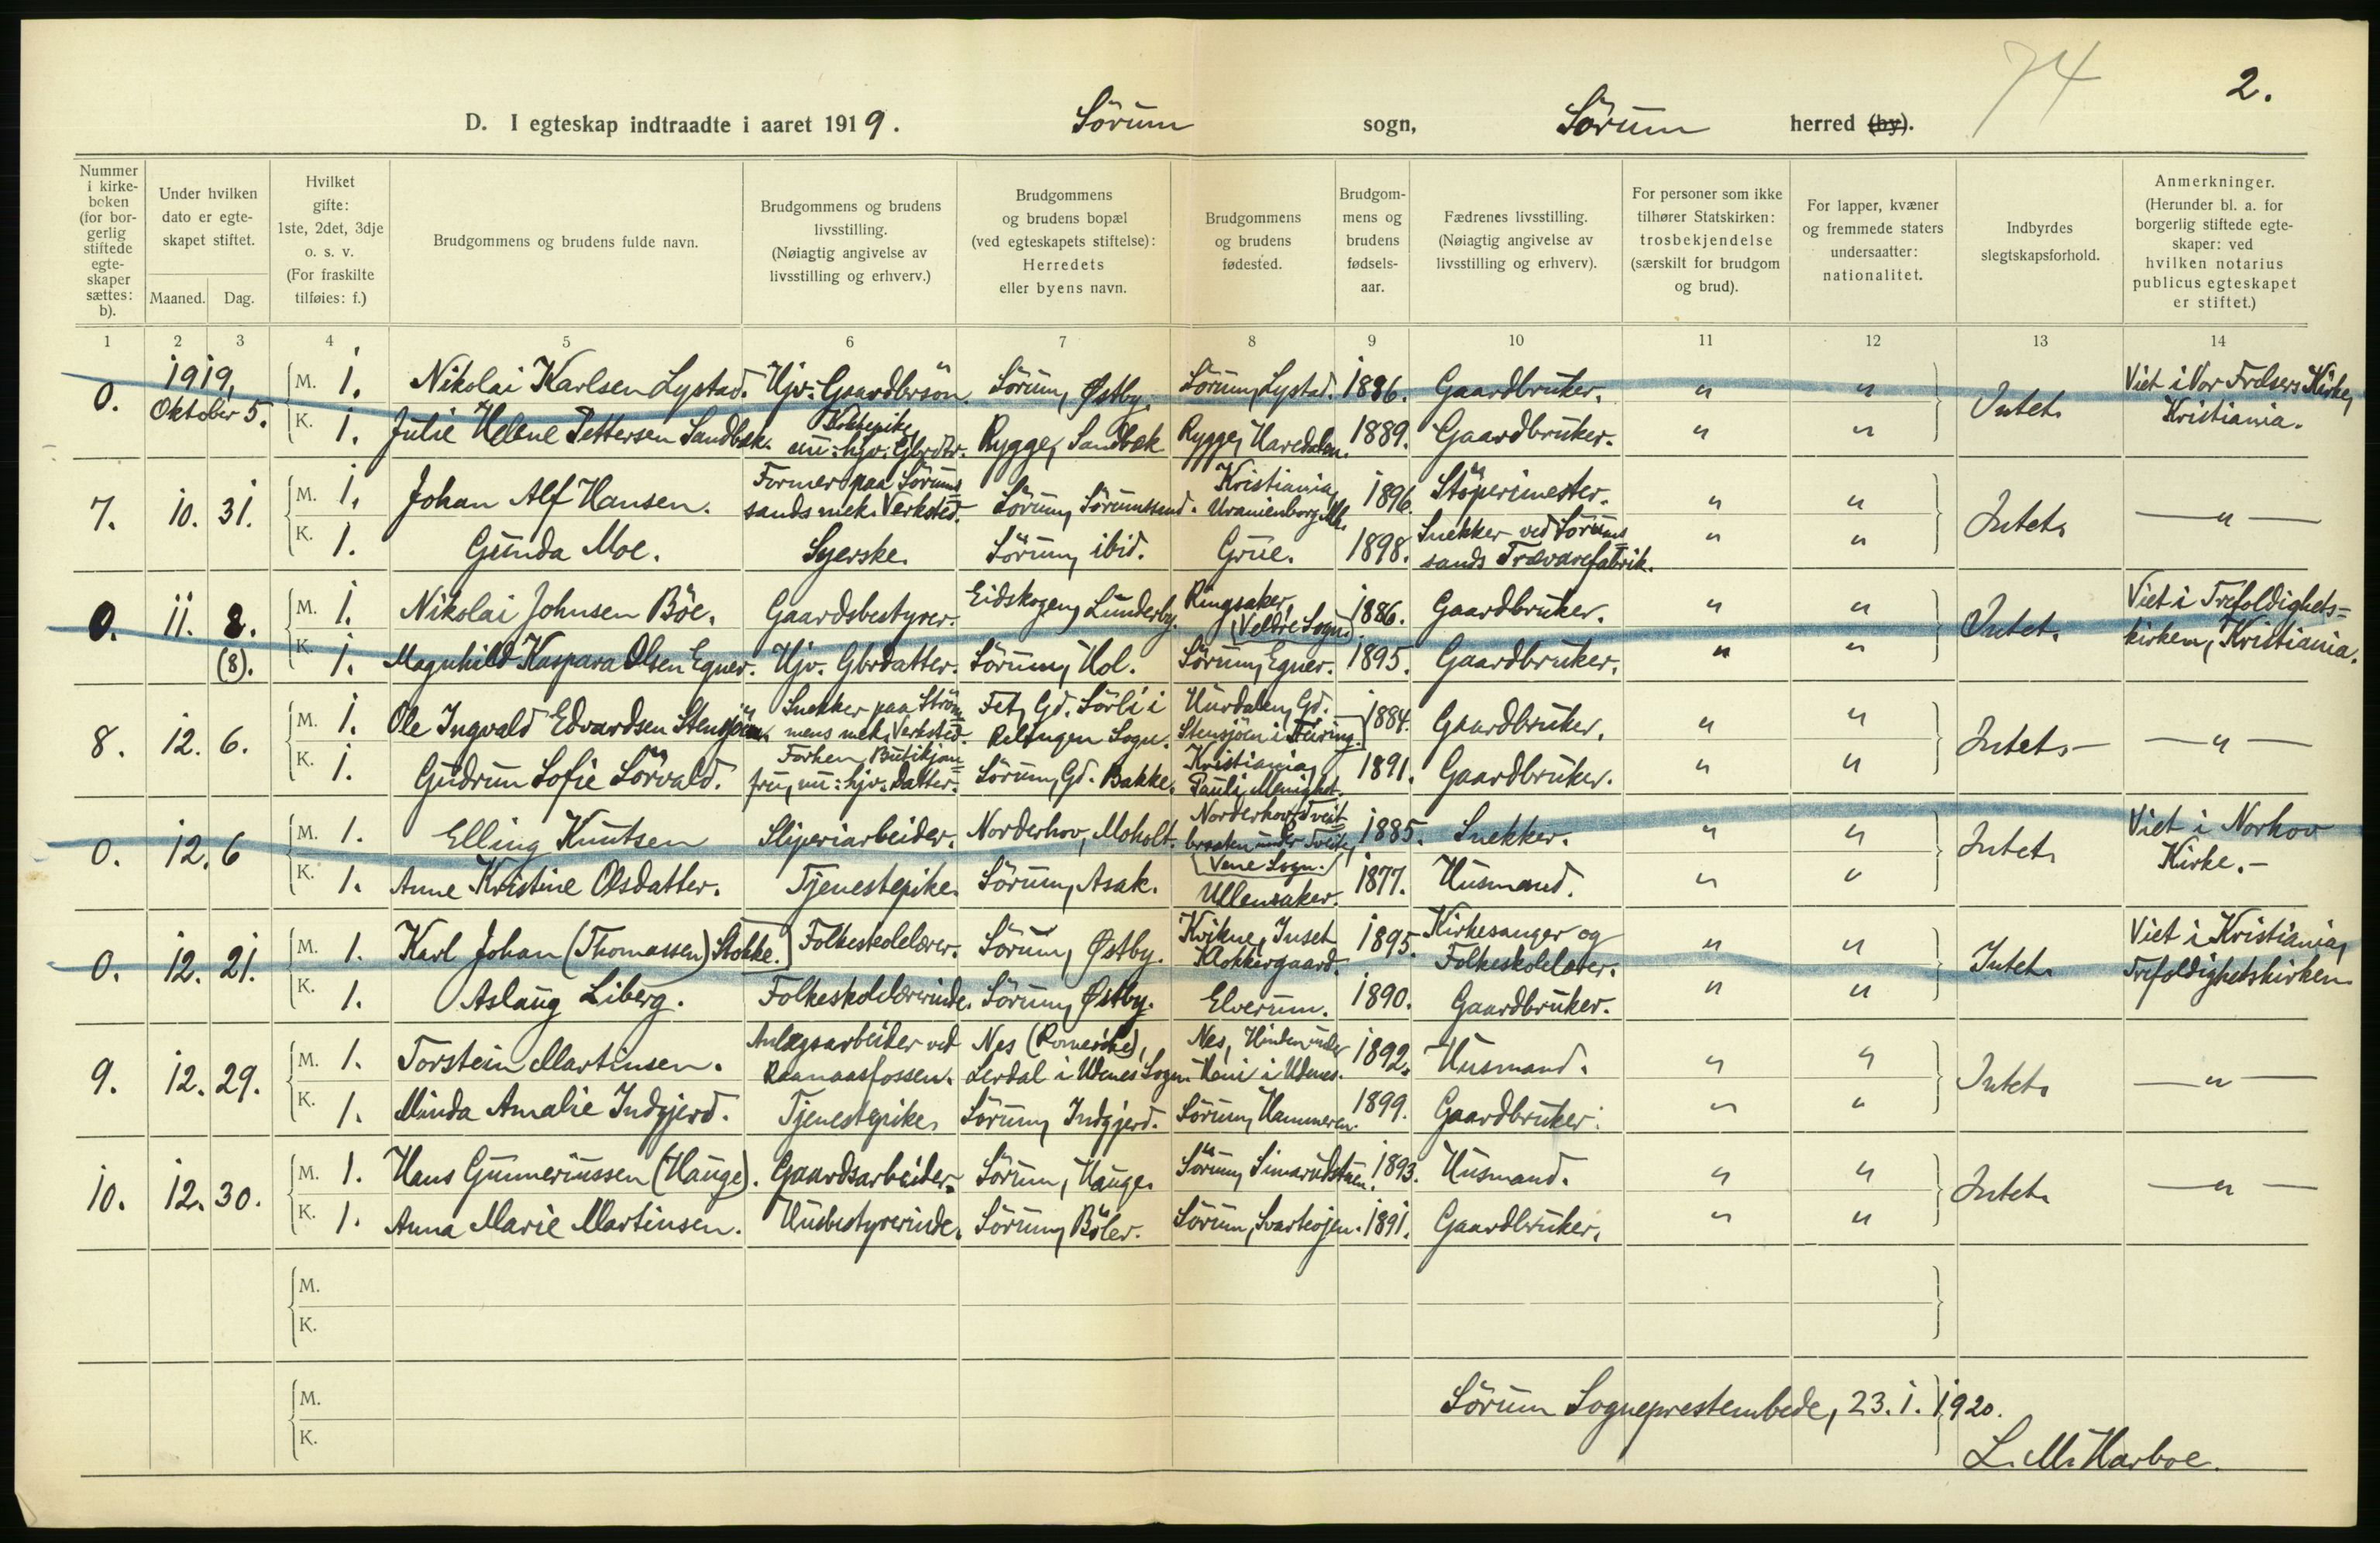 74
2.
D. I egteskap indtraadte i aaret 1919. Sörum sogn, Sörum herred (by).
Nummer i kirke-boken (for bor-gerlig stiftede egte-skaper sættes: b).
Under hvilken dato er egte-skapet stiftet.
Maaned. Dag.
Hvilket gifte: 1ste, 2det, 3dje o. s. v. (For fraskilte tilføies: f.)
Brudgommens og brudens fulde navn.
Brudgommens og brudens livsstilling. (Nøiagtig angivelse av livsstilling og erhverv.)
Brudgommens og brudens bopæl (ved egteskapets stiftelse): Herredets eller byens navn.
Brudgommens og brudens fødested.
Brudgom-mens og brudens fødsels-aar.
Fædrenes livsstilling. (Nøiagtig angivelse av livsstilling og erhverv).
For personer som ikke tilhører Statskirken: trosbekjendelse (særskilt for brudgom og brud).
For lapper, kvæner og fremmede staters undersaatter: nationalitet.
Indbyrdes slegtskapsforhold.
Anmerkninger. (Herunder bl. a. for borgerlig stiftede egte-skaper: ved hvilken notarius publicus egteskapet er stiftet.)
1 2 3 4 5 6 7 8 9 10 11 12 13 14
0. 1919, Oktober 5. M. 1. Nikolai Karlsen Lystad. Hjv: Gaardbrsön. Sörum, Østby. Sörum, Lystad. 1886. Gaardbruker. " " Intet. Viet i Vor Frelsers Kirke, Kristiania.
K. 1. Julie Helene Pettersen Sandbæk. Kokepike, nu: hjv: Gbrdtr. Rygge, Sandbæk Rygge, Haredalen. 1889. Gaardbruker. " "
7. 10. 31. M. 1. Johan Alf Hansen. Former paa Sörum=sands mek. Verksted. Sörum, Sörumsand. Kristiania, Uranienborg Mh. 1896. Støperimester. " " Intet. — " —
K. 1. Gunda Moe. Syerske. Sörum, ibid. Grue. 1898. Snekker ved Sörum=sands Trævarefabrik. " "
0. 11. 8. (8). M. 1. Nikolai Johnsen Böe. Gaardsbestyrer. Eidskogen, Lunderby. Ringsaker, (Veldre Sogn). 1886. Gaardbruker. " " Intet. Viet i Trefoldighets=kirken, Kristiania.
K. 1. Magnhild Kaspara Olsen Egner. Hjv. Gbrdatter. Sörum, Hol. Sörum, Egner. 1895. Gaardbruker. " "
8. 12. 6. M. 1. Ole Ingvald Edvardsen Stensjöen. Snekker paa Ström=mens mek. Verksted. Fet, Gd. Sörli i Relingen Sogn. Hurdalen, Gd. Stensjöen i Feiring. 1884. Gaardbruker. " " Intet. — " —
K. 1. Gudrun Sofie Sörvald. Forhen Butikjom=fru, nu: hjv: Datter. Sörum, Gd. Bakke. Kristiania, Pauli Menighet. 1891. Gaardbruker. " "
0. 12. 6 M. 1. Elling Knutsen Sliperiarbeider. Norderhov, Moholt. Norderhov, Tveit=braaten under Tveite, (Veme Sogn.) 1885. Snekker. " " Intet. Viet i Norhov Kirke. —
K. 1. Anne Kristine Olsdatter. Tjenestepike. Sörum, Asak. Ullensaker. 1877. Husmand. " "
0. 12. 21. M. 1. Karl Johan (Thomassen) Stokke. Folkeskolelærer. Sörum, Østby. Kvikne, Inset Klokkergaard. 1895. Kirkesanger og Folkeskolelærer. " " Intet. Viet i Kristiania, Trefoldighetskirken
K. 1. Aslaug Liberg. Folkeskolelærerinde. Sörum, Østby. Elverum. 1890. Gaardbruker. " "
9. 12. 29. M. 1. Torstein Martinsen. Anlægsarbeider ved Raanaasfossen. Nes (Romerike), Lerdal i Udenes Sogn. Nes, Hinden under Henni i Udenes. 1892. Husmand. " " Intet. — " —
K. 1. Minda Amalie Indgjerd. Tjenestepike. Sörum, Indgjerd. Sörum, Hammeren. 1899. Gaardbruker. " "
10. 12. 30. M. 1. Hans Gunneriussen (Hauge). Gaardsarbeider. Sörum, Hauge. Sörum, Simarudstuen. 1893. Husmand. " " Intet. — " —
K. 1. Anna Marie Martinsen. Husbestyrerinde. Sörum, Böler. Sörum, Svartvojen. 1891. Gaardbruker. " "
M.
K.
M.
K.
Sörum Sogneprestembede, 23. 1. 1920.
L. M. Harboe.